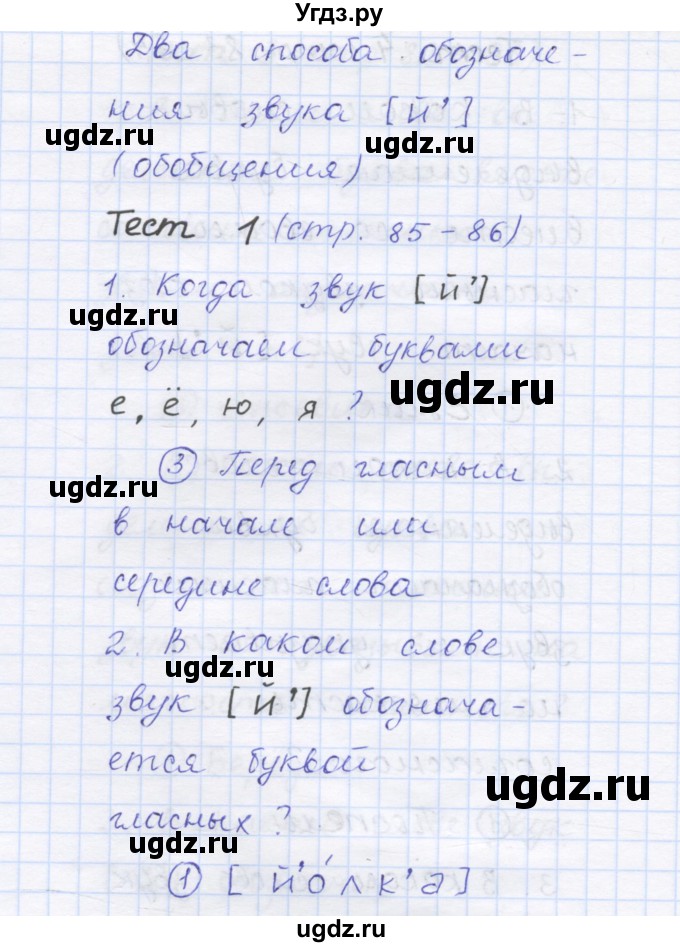 Угдз.ру
Два способа обозначе-
ния звука [й’]
ugdz.ru
ugdz.ru
(обобщения)
Тест 1 (стр. 85 – 86)
1. Когда звук [й’]
ugdz.ru
обозначаем буквами
ugdz.ru
е, ё, ю, я ?
③ Перед гласным
ugdz.ru
в начале или
середине слова
2. В каком слове
ugdz.ru
звук [й’] обознача-
ется буквой
ugdz.ru
гласных ?
① [й’о́лк’а]